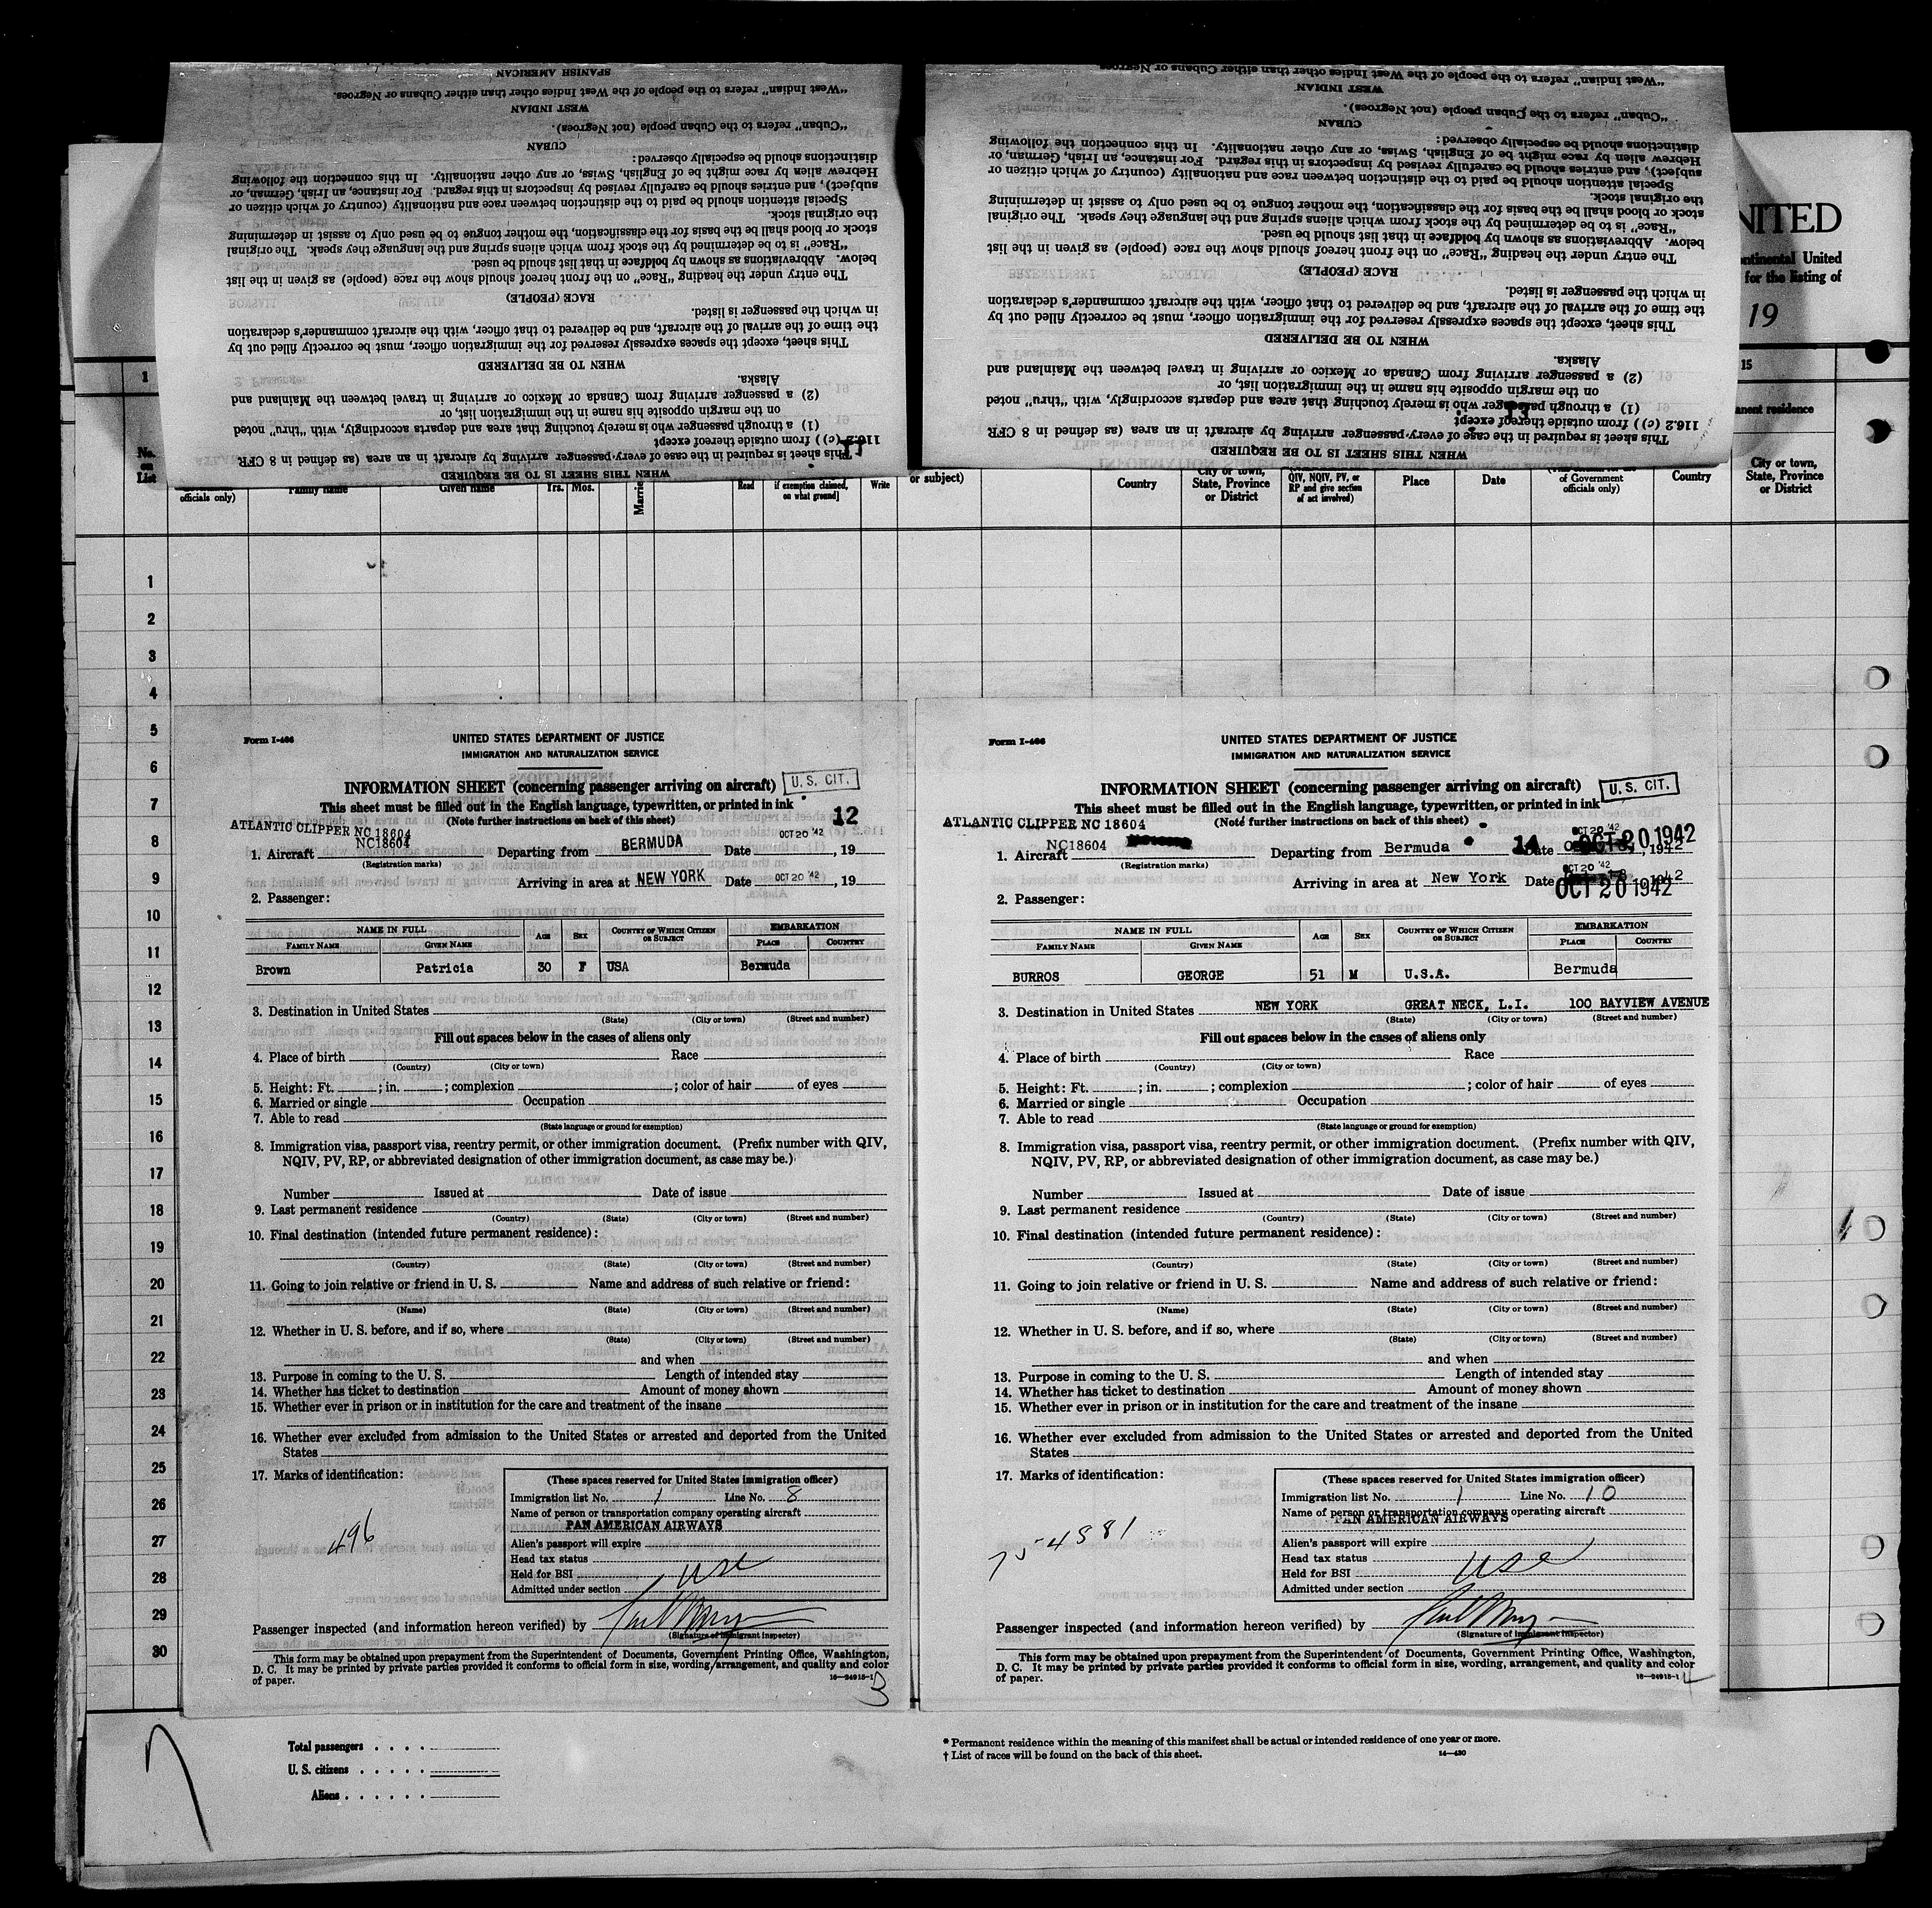 SPANISH AMERICAN
"West Indian" refers to the people of the West Indies other than either Cubans or Negroes.
WEST INDIAN
"Cuban" refers to the Cuban people (not Negroes).
CUBAN
distinctions should be especially observed:
Hebrew alien by race might be of English, Swiss, or any other nationality. In this connection the following
subject), and entries should be carefully revised by inspectors in this regard. For instance, an Irish, German, or
Special attention should be paid to the distinction between race and nationality (country of which citizen or
the original stock.
stock or blood shall be the basis for the classification, the mother tongue to be used only to assist in determining
"Race" is to be determined by the stock from which aliens spring and the language they speak. The original
below. Abbreviations as shown by boldface in that list should be used.
The entry under the heading "Race" on the front hereof should show the race (people) as given in the list
RACE (PEOPLE)
in which the passenger is listed.
the time of the arrival of the aircraft, and be delivered to that officer, with the aircraft commander's declaration
This sheet, except the spaces expressly reserved for the immigration officer, must be correctly filled out by
WHEN TO BE DELIVERED
Alaska.
(2) a passenger arriving from Canada or Mexico or arriving in travel between the Mainland and
on the margin opposite his name in the immigration list, or
(1) a through passenger who is merely touching that area and departs accordingly, with "thru" noted
116.2 (c)) from outside thereof except
11
This sheet is required in the case of every passenger arriving by aircraft in an area (as defined in 8 CFR
WHEN THIS SHEET IS TO BE REQUIRED
"West Indian" refers to the people of the West Indies other than either Cubans or Negroes
WEST INDIAN
"Cuban" refers to the Cuban people (not Negroes).
CUBAN
distinctions should be especially observed:
Hebrew alien by race might be of English, Swiss, or any other nationality. In this connection the following
subject), and entries should be carefully revised by inspectors in this regard. For instance, an Irish, German, or
Special attention should be paid to the distinction between race and nationality (country of which citizen or
the original stock.
stock or blood shall be the basis for the classification, the mother tongue to be used only to assist in determining
"Race" is to be determined by the stock from which aliens spring and the language they speak. The original
below. Abbreviations as shown by boldface in that list should be used.
The entry under the heading "Race" on the front hereof should show the race (people) as given in the list
RACE (PEOPLE)
in which the passenger is listed.
the time of the arrival of the aircraft, and be delivered to that officer, with the aircraft commander's declaration
This sheet, except the spaces expressly reserved for the immigration officer, must be correctly filled out by
WHEN TO BE DELIVERED
Alaska.
(2) a passenger arriving from Canada or Mexico or arriving in travel between the Mainland and
on the margin opposite his name in the immigration list, or
(1) a through passenger who is merely touching that area and departs accordingly, with "thru" noted
116.2 (c)) from outside thereof except
This sheet is required in the case of every passenger arriving by aircraft in an area (as defined in 8 CFR
WHEN THIS SHEET IS TO BE REQUIRED
NITED
ontinental United
for the listing of
19
1
15
anent residence
No. on List
officials only)
Family name
Given name
Yrs. Mos.
Marrie
Read
if exemption claimed, on what ground]
Write
or subject)
Country
City or town, State, Province or District
QIV, NQIV, PV, or RP and give section of act involved)
Place
Date
of Government officials only)
Country
City or town, State, Province or District
1
2
3
4
5
6
7
8
9
10
11
12
13
14
15
16
17
18
19
20
21
22
23
24
25
26
27
28
29
30
Form I-466
UNITED STATES DEPARTMENT OF JUSTICE
IMMIGRATION AND NATURALIZATION SERVICE
INFORMATION SHEET (concerning passenger arriving on aircraft)
U. S. CIT.
This sheet must be filled out in the English language, typewritten, or printed in ink
12
(Note further instructions on back of this sheet)
ATLANTIC CLIPPER NC 18604
1. Aircraft NC18604 Departing from BERMUDA Date OCT 20 '42, 19
(Registration marks)
Arriving in area at NEW YORK Date OCT 20 '42, 19
2. Passenger:
NAME IN FULL AGE SEX COUNTRY OF WHICH CITIZEN OR SUBJECT EMBARKATION
FAMILY NAME GIVEN NAME PLACE COUNTRY
Brown Patricia 30 F USA Bermuda
3. Destination in United States
(State) (City or town) (Street and number)
Fill out spaces below in the cases of aliens only
4. Place of birth Race
(Country) (City or town)
5. Height: Ft. ; in. ; complexion ; color of hair of eyes
6. Married or single Occupation
7. Able to read
(State language or ground for exemption)
8. Immigration visa, passport visa, reentry permit, or other immigration document. (Prefix number with QIV,
NQIV, PV, RP, or abbreviated designation of other immigration document, as case may be.)
Number Issued at Date of issue
9. Last permanent residence
(Country) (State) (City or town) (Street and number)
10. Final destination (intended future permanent residence):
(Country) (State) (City or town) (Street and number)
11. Going to join relative or friend in U. S. Name and address of such relative or friend:
(Name) (State) (City or town) (Street and number)
12. Whether in U. S. before, and if so, where
(State) (City or town) (Street and number)
and when
13. Purpose in coming to the U. S. Length of intended stay
14. Whether has ticket to destination Amount of money shown
15. Whether ever in prison or in institution for the care and treatment of the insane
16. Whether ever excluded from admission to the United States or arrested and deported from the United
States
17. Marks of identification:
496
(These spaces reserved for United States immigration officer)
Immigration list No. 1 Line No. 8
Name of person or transportation company operating aircraft
PAN AMERICAN AIRWAYS
Alien's passport will expire
Head tax status
Held for BSI usc
Admitted under section
Passenger inspected (and information hereon verified) by
(Signature of Immigrant Inspector)
This form may be obtained upon prepayment from the Superintendent of Documents, Government Printing Office, Washington,
D. C. It may be printed by private parties provided it conforms to official form in size, wording, arrangement, and quality and color
of paper. 16—24915-1
3
Form I-466
UNITED STATES DEPARTMENT OF JUSTICE
IMMIGRATION AND NATURALIZATION SERVICE
INFORMATION SHEET (concerning passenger arriving on aircraft)
U. S. CIT.
This sheet must be filled out in the English language, typewritten, or printed in ink
(Note further instructions on back of this sheet)
ATLANTIC CLIPPER NC 18604
1. Aircraft NC18604 Departing from Bermuda 14 Date OCT 20 '42 OCT 20 1942, 1942
(Registration marks)
Arriving in area at New York Date OCT 20 '42 OCT 20 1942, 1942
2. Passenger:
NAME IN FULL AGE SEX COUNTRY OF WHICH CITIZEN OR SUBJECT EMBARKATION
FAMILY NAME GIVEN NAME PLACE COUNTRY
BURROS GEORGE 51 M U.S.A. Bermuda
3. Destination in United States NEW YORK GREAT NECK, L.I. 100 BAYVIEW AVENUE
(State) (City or town) (Street and number)
Fill out spaces below in the cases of aliens only
4. Place of birth Race
(Country) (City or town)
5. Height: Ft. ; in. ; complexion ; color of hair of eyes
6. Married or single Occupation
7. Able to read
(State language or ground for exemption)
8. Immigration visa, passport visa, reentry permit, or other immigration document. (Prefix number with QIV,
NQIV, PV, RP, or abbreviated designation of other immigration document, as case may be.)
Number Issued at Date of issue
9. Last permanent residence
(Country) (State) (City or town) (Street and number)
10. Final destination (intended future permanent residence):
(Country) (State) (City or town) (Street and number)
11. Going to join relative or friend in U. S. Name and address of such relative or friend:
(Name) (State) (City or town) (Street and number)
12. Whether in U. S. before, and if so, where
(State) (City or town) (Street and number)
and when
13. Purpose in coming to the U. S. Length of intended stay
14. Whether has ticket to destination Amount of money shown
15. Whether ever in prison or in institution for the care and treatment of the insane
16. Whether ever excluded from admission to the United States or arrested and deported from the United
States
17. Marks of identification:
(These spaces reserved for United States immigration officer)
Immigration list No. 1 Line No. 10
Name of person or transportation company operating aircraft
PAN AMERICAN AIRWAYS
Alien's passport will expire
Head tax status
Held for BSI usc
Admitted under section
Passenger inspected (and information hereon verified) by
(Signature of Immigrant Inspector)
This form may be obtained upon prepayment from the Superintendent of Documents, Government Printing Office, Washington,
D. C. It may be printed by private parties provided it conforms to official form in size, wording, arrangement, and quality and color
of paper. 16—24915-1
4
Total passengers . . . .
U. S. citizens . . . . .
Aliens . . . . . .
* Permanent residence within the meaning of this manifest shall be actual or intended residence of one year or more.
† List of races will be found on the back of this sheet. 14—430